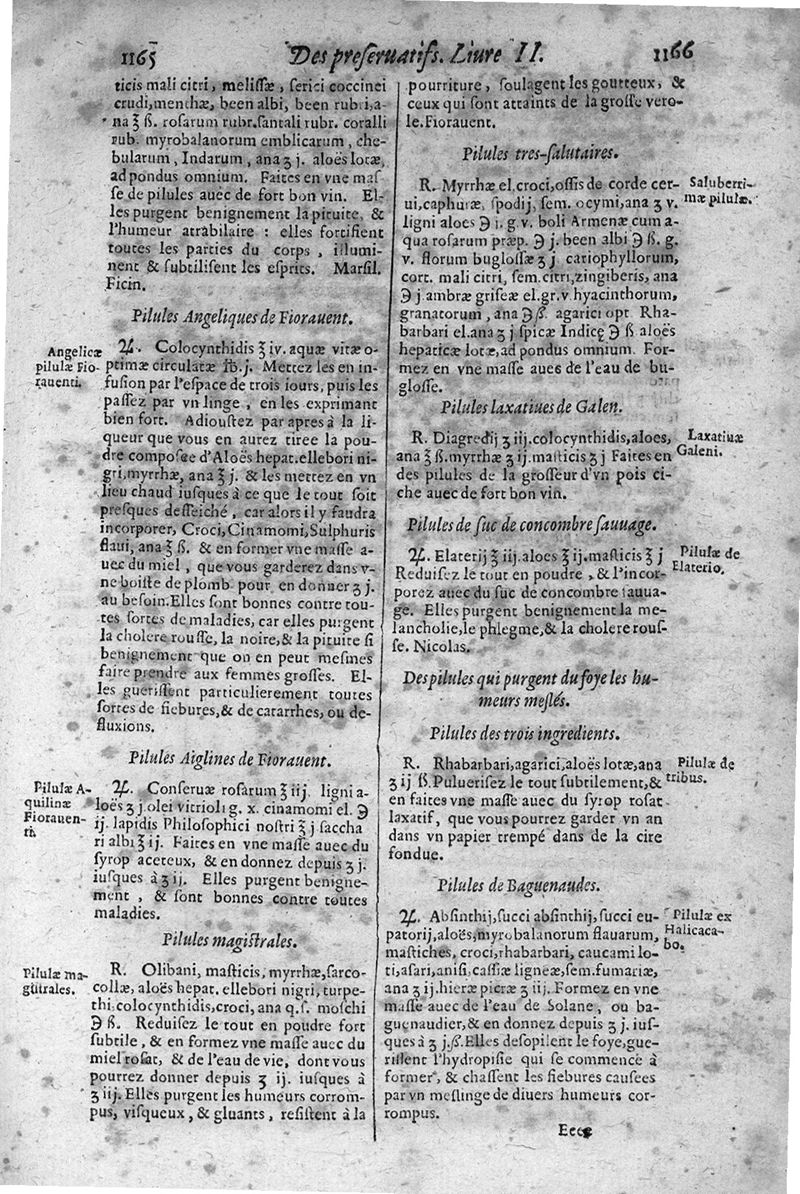 1165
Des preseruatifs. Liure II.
1166
ticis mali citri, melissæ, serici coccinei
crudi, menthæ, been albi, been rubri, a-
na ℥ ß. rosarum rubr. santali rubr. coralli
rub. myrobalanorum emblicarum, che-
bularum, Indarum, ana ʒ j. aloës lotæ,
ad pondus omnium. Faites en vne mas-
se de pilules auec de fort bon vin. El-
les purgent benignement la pituite, &
l'humeur atrabilaire : elles fortifient
toutes les parties du corps, illumi-
nent & subtilisent les esprits. Marsil.
Ficin.
Pilules Angeliques de Fiorauent.
Angelicæ
pilulæ Fio-
rauenti.
♃. Colocynthidis ℥ iv. aquæ vitæ o-
ptimæ circulatæ ℔. j. Mettez les en in-
fusion par l'espace de trois iours, puis les
passez par vn linge, en les exprimant
bien fort. Adioustez par apres à la li-
queur que vous en aurez tiree la pou-
dre composee d'Aloës hepat. ellebori ni-
gri, myrrhæ, ana ℥ j. & les mettez en vn
lieu chaud iusques à ce que le tout soit
presques desseiché, car alors il y faudra
incorporer, Croci, Cinamomi, Sulphuris
flaui, ana ℥ ß. & en former vne masse a-
uec du miel, que vous garderez dans v-
ne boiste de plomb pour en donner ʒ j.
au besoin. Elles sont bonnes contre tou-
tes sortes de maladies, car elles purgent
la cholere rousse, la noire, & la pituite si
benignement que on en peut mesmes
faire prendre aux femmes grosses. El-
les guerissent particulierement toutes
sortes de fiebures, & de catarrhes, ou de-
fluxions.
Pilules Aiglines de Fiorauent.
Pilulæ A-
quilinæ
Fiorauen-
ti.
♃. Conseruæ rosarum ℥ iij. ligni a-
loës ʒ j olei vitrioli g. x. cinamomi el. ℈
ij. lapidis Philosophici nostri ℥ j saccha
ri albi ℥ ij. Faites en vne masse auec du
syrop aceteux, & en donnez depuis ʒ j.
iusques à ʒ ij. Elles purgent benigne-
ment, & sont bonnes contre toutes
maladies.
Pilules magistrales.
Pilulæ ma-
gistrales.
R. Olibani, masticis, myrrhæ, sarco-
collæ, aloës hepat. ellebori nigri, turpe-
thi colocynthidis, croci, ana q. s. moschi
℈ ß. Reduisez le tout en poudre fort
subtile, & en formez vne masse auec du
miel rosat, & de l'eau de vie, dont vous
pourrez donner depuis ʒ ij. iusques à
ʒ iij. Elles purgent les humeurs corrom-
pus, visqueux, & gluants, resistent à la
pourriture, soulagent les goutteux, &
ceux qui sont attaints de la grosse vero-
le. Fiorauent.
Pilules tres-salutaires.
Saluberri-
mæ pilulæ.
R. Myrrhæ el. croci, ossis de corde cer-
ui, caphuræ, spodij, sem. ocymi, ana ʒ v.
ligni aloes ℈ j. g. v. boli Armenæ cum a-
qua rosarum præp. ℈ j. been albi ℈ ß. g.
v. florum buglossæ ʒ j cariophyllorum,
cort. mali citri, sem. citri, zingiberis, ana
℈ j. ambræ griseæ el. gr. v hyacinthorum,
granatorum, ana ℈ ß. agarici opt Rha-
barbari el. ana ʒ j spicæ Indicę ℈ ß aloës
hepaticæ lotæ, ad pondus omnium. For-
mez en vne masse auec de l'eau de bu-
glosse.
Pilules laxatiues de Galen.
Laxatiuæ
Galeni.
R. Diagredij ʒ iij. colocynthidis, aloes,
ana ℥ ß. myrrhæ ʒ ij. masticis ʒ j Faites en
des pilules de la grosseur d'vn pois ci-
che auec de fort bon vin.
Pilules de suc de concombre sauuage.
Pilulæ de
Elaterio.
♃. Elaterij ℥ iij. aloes ℥ ij. masticis ℥ j
Reduisez le tout en poudre, & l'incor-
porez auec du suc de concombre sauua-
ge. Elles purgent benignement la me-
lancholie, le phlegme, & la cholere rous-
se. Nicolas.
Des pilules qui purgent du foye les hu-
meurs meslés.
Pilules des trois ingredients.
Pilulæ de
tribus.
R. Rhabarbari, agarici, aloës lotæ, ana
ʒ ij ß. Puluerisez le tout subtilement, &
en faites vne masse auec du syrop rosat
laxatif, que vous pourrez garder vn an
dans vn papier trempé dans de la cire
fondue.
Pilules de Baguenaudes.
Pilulæ ex
Halicaca-
bo.
♃. Absinthij, succi absinthij, succi eu-
patorij, aloës, myrobalanorum flauarum,
mastiches, croci, rhabarbari, caucami lo-
ti, asari, anisi cassiæ ligneæ, sem. fumariæ,
ana ʒ ij. hieræ picræ ʒ iij. Formez en vne
masse auec de l'eau de Solane, ou ba-
guenaudier, & en donnez depuis ʒ j. ius-
ques à ʒ j. ß. Elles desopilent le foye, gue-
rissent l'hydropisie qui se commence à
former, & chassent les fiebures causees
par vn meslinge de diuers humeurs cor-
rompus.